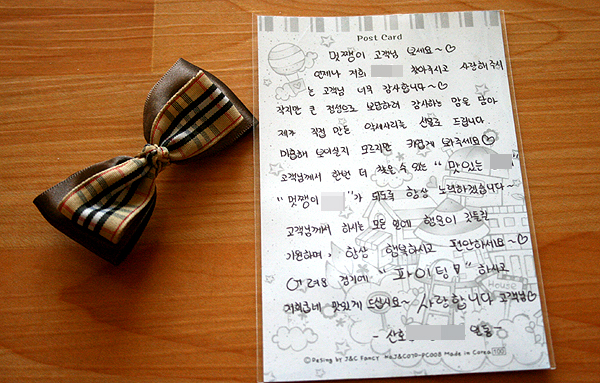 Post Card
멋쟁이 고객님 보세요~♡
언제나 저희 찾아주시고 사랑해주시
는 고객님 너무 감사합니다~♡
작지만 큰 정성으로 보답하려 감사하는 맘을 담아
제가 직접 만든 악세사리를 선물로 드립니다
미흡해 보이실지 모르지만 귀엽게 봐주세요♡
고객님께서 한번 더 찾을 수 있는 "맛있는 "
"멋쟁이 "가 되도록 항상 노력하겠습니다~
고객님께서 하시는 모든 일에 행운이 깃들길
기원하며, 항상 행복하시고 편안하세요~♡
어려운 경기에 "파이팅!" 하시고
저희 맛있게 드십시요~ 사랑합니다 고객님♡
- 산호 일동 -
House
© Desing by J&C Fancy No.J&C07P-PC008 Made in Korea 100